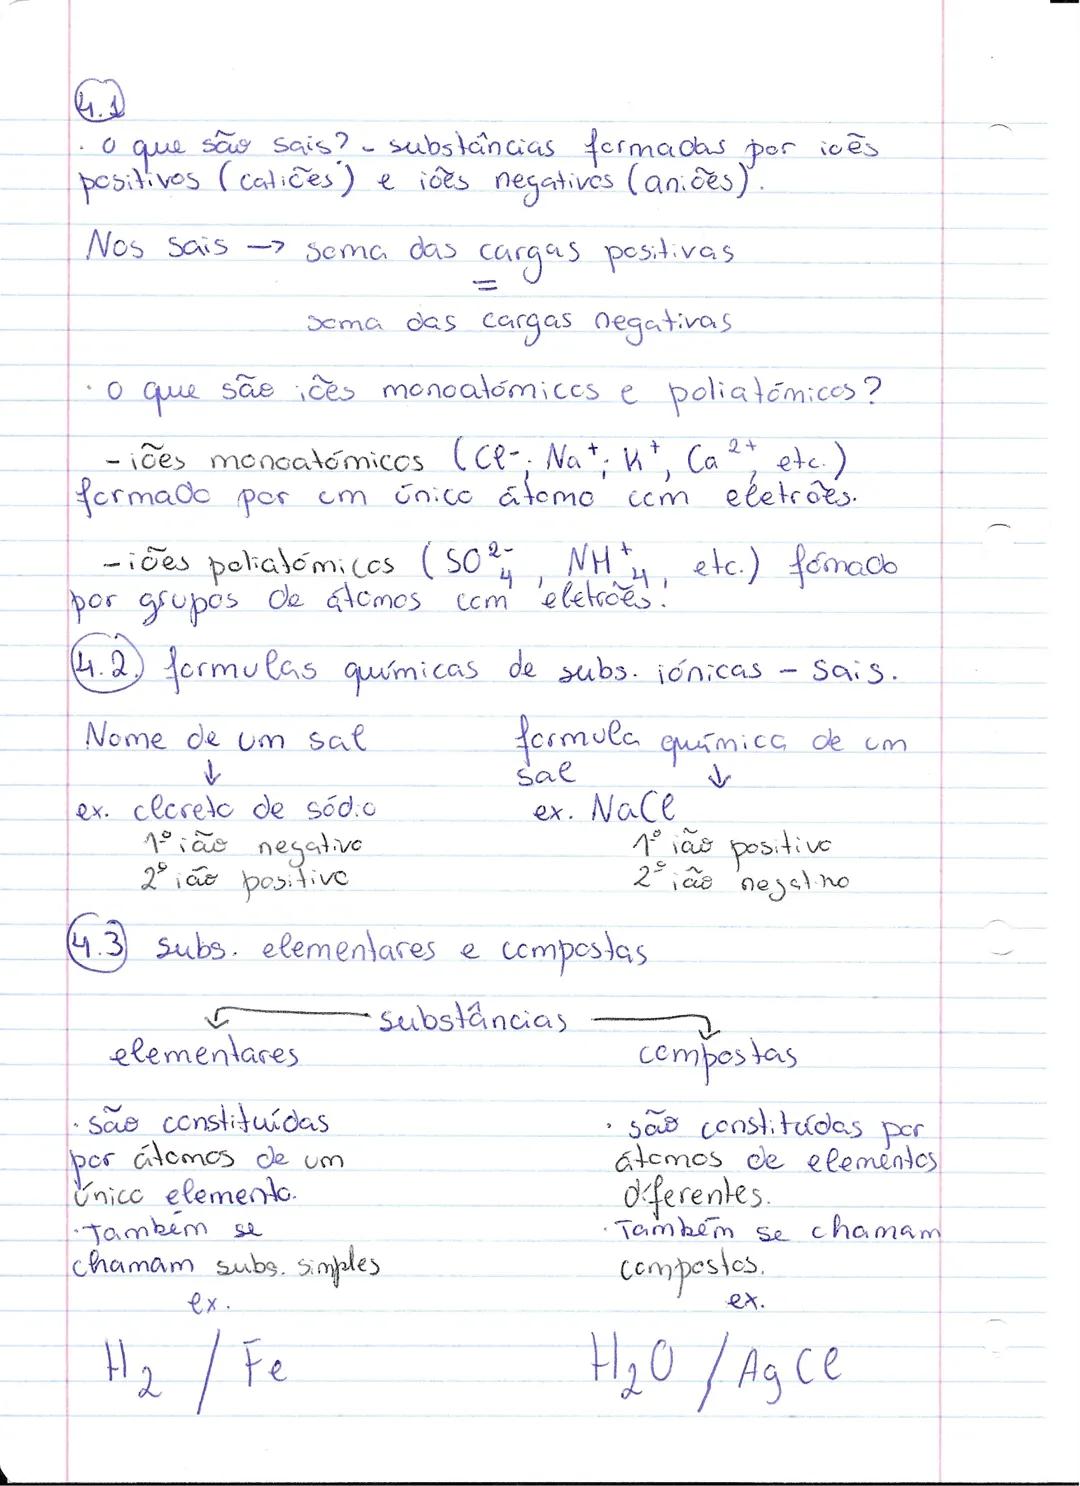 4.1
· o que são sais? - substâncias formadas por iões
positivos (catiões) e iões negativos (aniões).
Nos sais → soma das cargas positivas
=
soma das cargas negativas
· o que são iões monoatómicos e poliatómicos?
- iões monoatómicos (Cl⁻; Na⁺; K⁺, Ca²⁺, etc.)
formado por um único átomo com eletrões.
- iões poliatómicos (SO₄²⁻, NH₄⁺, etc.) fómado
por grupos de átomos com eletrões.
4.2. formulas químicas de subs. iónicas - sais.
Nome de um sal
↓
ex. cloreto de sódio
1º ião negativo
2º ião positivo
formula química de um
sal ↓
ex. NaCl
1º ião positivo
2º ião negativo
4.3 subs. elementares e compostas
substâncias
elementares
· são constituídas
por átomos de um
único elemento.
· Também se
chamam subs. simples
ex.
H₂ / Fe
compostas
· são constituídas por
átomos de elementos
diferentes.
· Também se chamam
compostos.
ex.
H₂O / AgCl